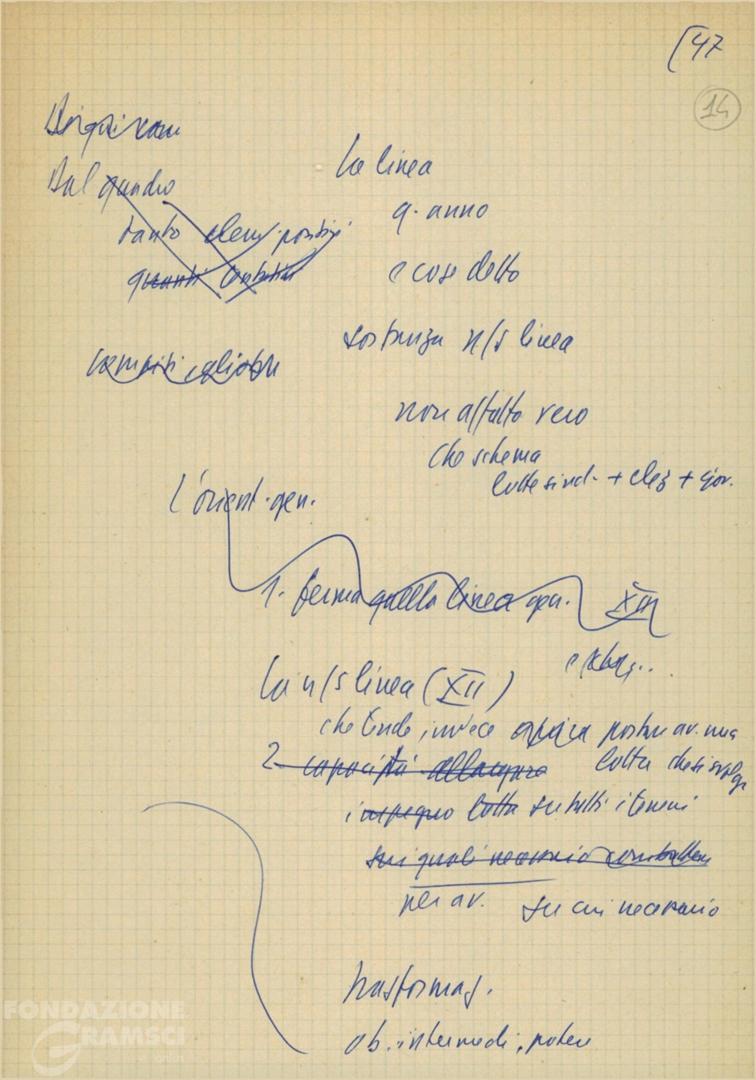 [47
14
Dal quadro
tanto elem. positivi
quanti
La linea
q. anno
e cose dette
sostanza n/s linea
non affatto vero
che schema
lotte sind. + elez + gov.
L'orient. gen.
1. ferma quella linea gen. XII
e
La n/s linea (XII)
che tende invece a portare av. una
2 capacità lotta che si svolge
impegno lotta su tutti i terreni
sui quali necessario combattere
per av. su cui necessario
trasformaz.
ob. intermedi, potere
FONDAZIONE
GRAMSCI